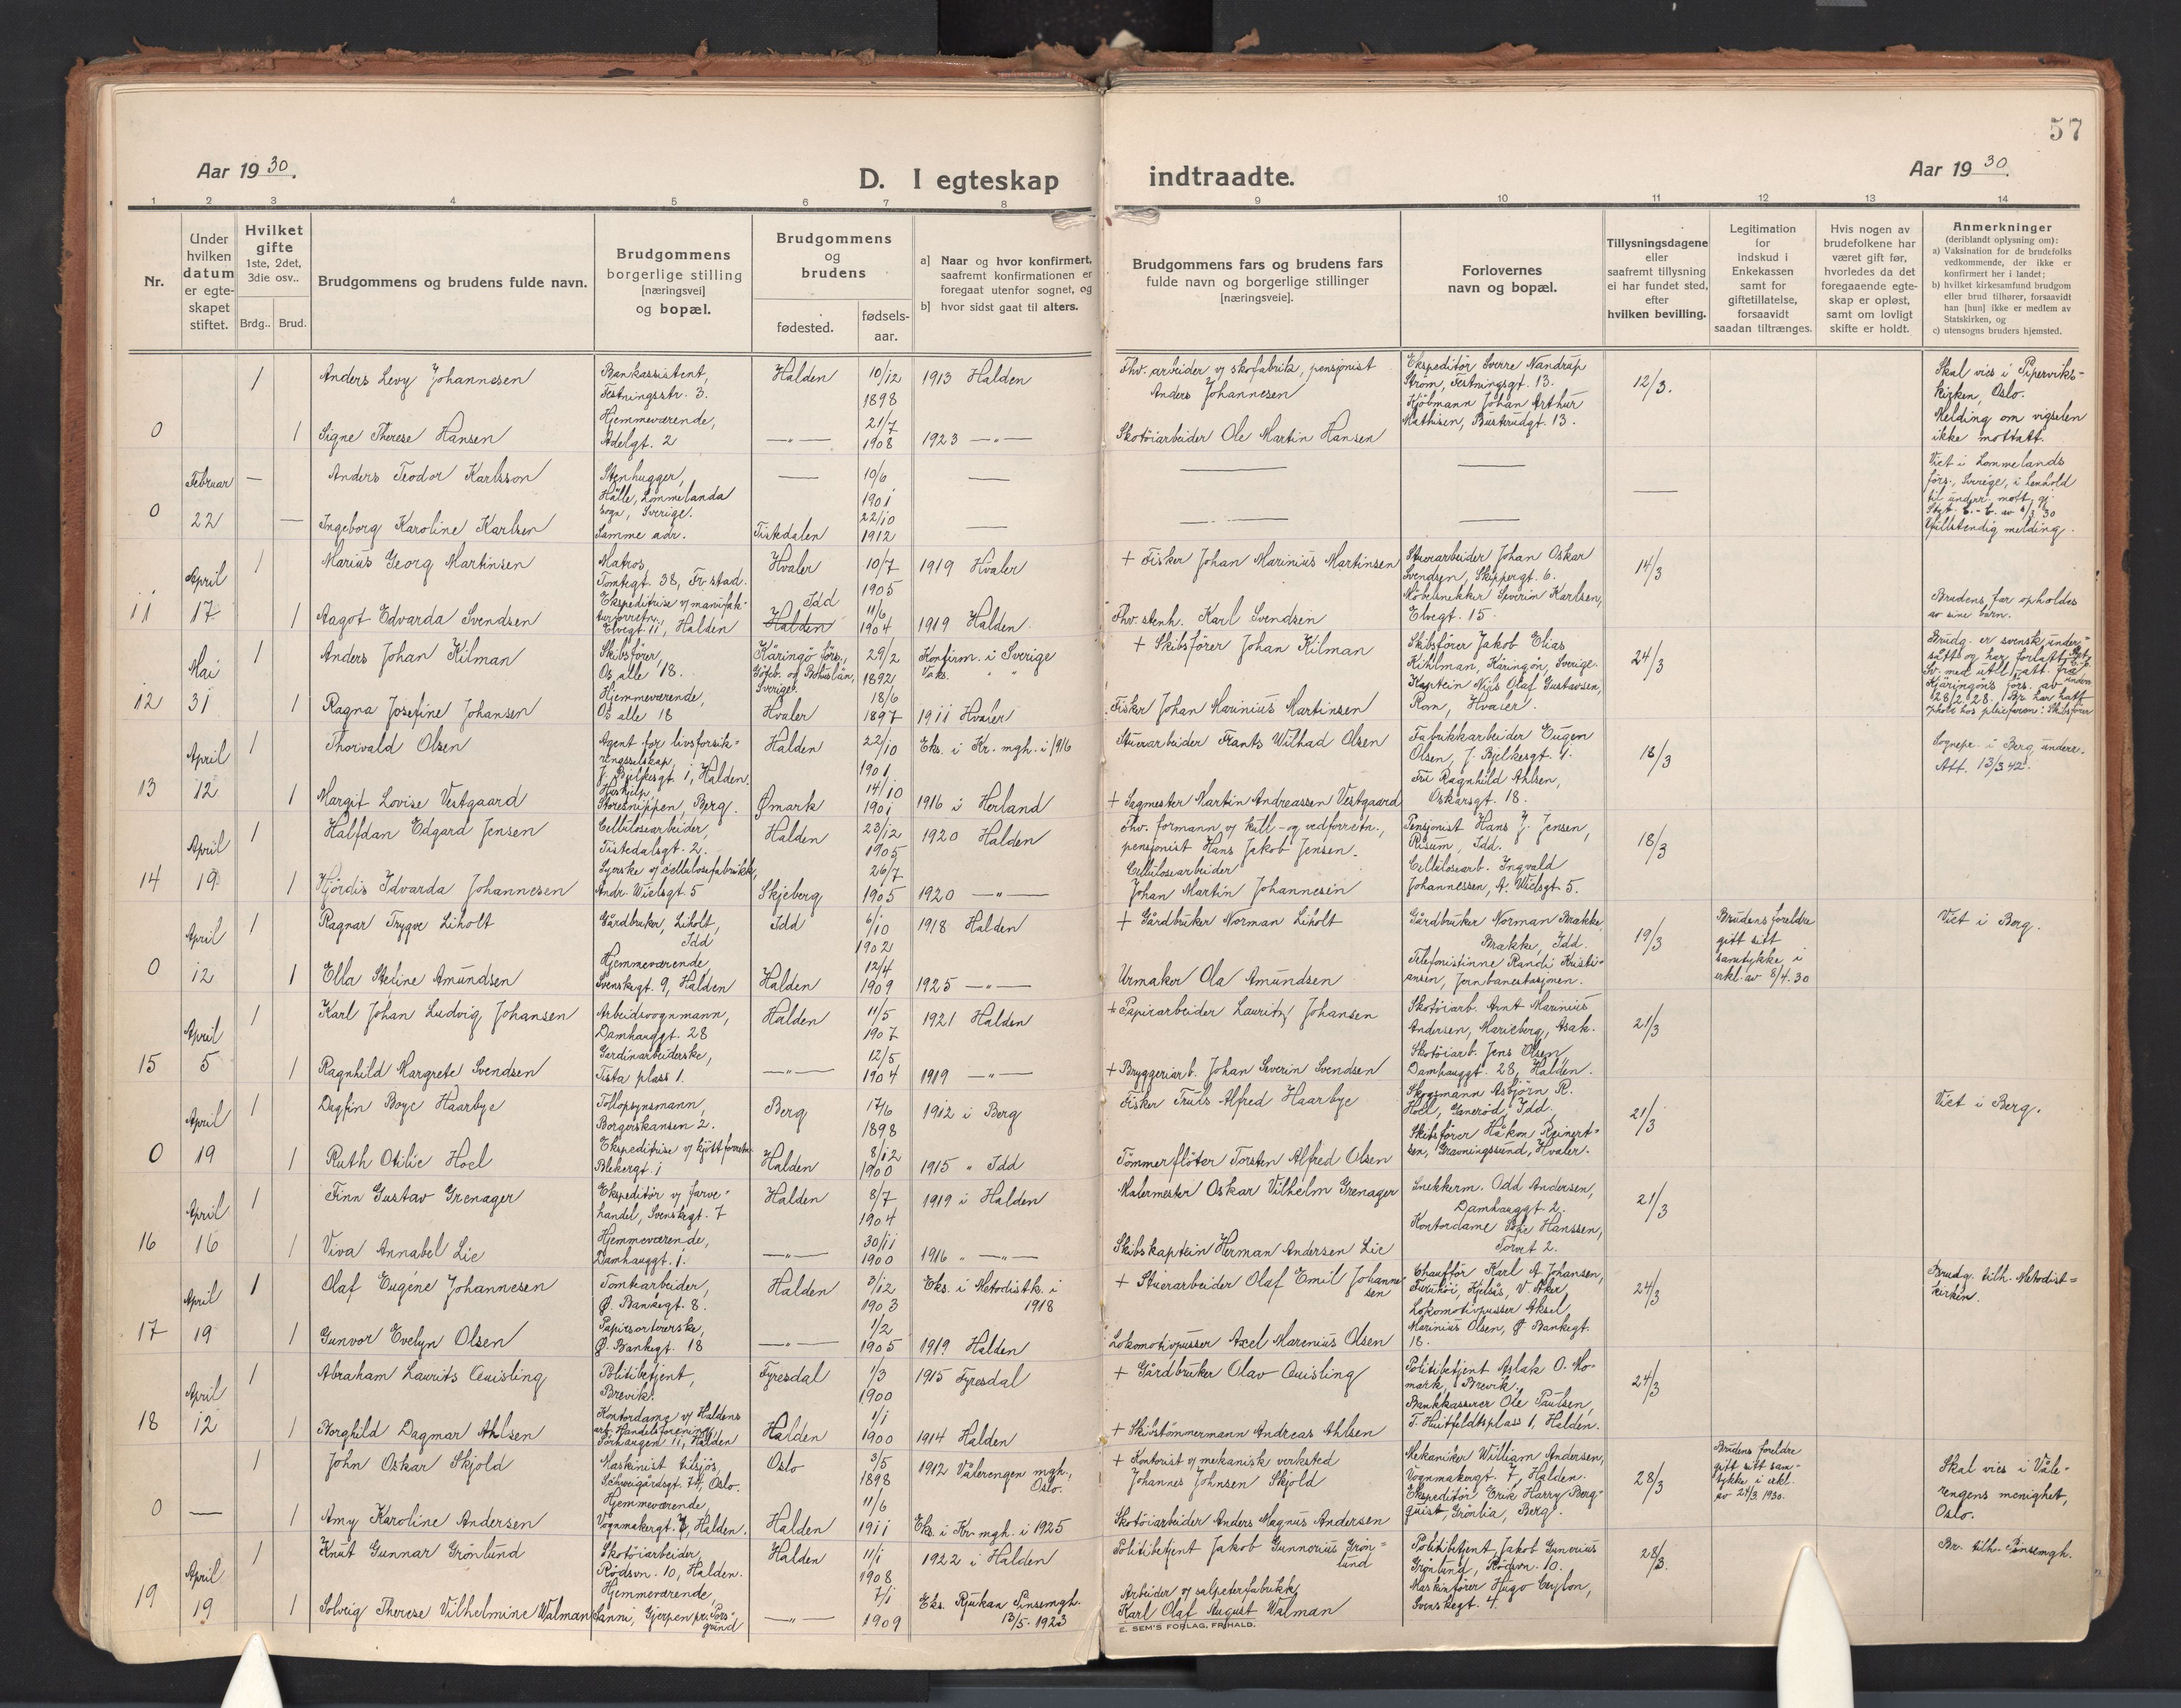 57
Aar 1930.
D. I egteskap indtraadte.
Aar 1930.
1 2 3 4 5 6 7 8 9 10 11 12 13 14
Nr.
Under hvilken datum er egteskapet stiftet.
Hvilket gifte 1ste, 2det, 3die osv..
Brdg.. Brud.
Brudgommens og brudens fulde navn.
Brudgommens borgerlige stilling [næringsvei] og bopæl.
Brudgommens og brudens
fødested.
fødselsaar.
a] Naar og hvor konfirmert, saafremt konfirmationen er foregaat utenfor sognet, og
b] hvor sidst gaat til alters.
Brudgommens fars og brudens fars fulde navn og borgerlige stillinger [næringsveie].
Forlovernes navn og bopæl.
Tillysningsdagene eller saafremt tillysning ei har fundet sted, efter hvilken bevilling.
Legitimation for indskud i Enkekassen samt for giftetillatelse, forsaavidt saadan tiltrænges.
Hvis nogen av brudefolkene har været gift før, hvorledes da det foregaaende egteskap er opløst, samt om lovligt skifte er holdt.
Anmerkninger
(deriblandt oplysning om):
a) Vaksination for de brudefolks vedkommende, der ikke er konfirmert her i landet;
b) hvilket kirkesamfund brudgom eller brud tilhører, forsaavidt han [hun] ikke er medlem av Statskirken, og
c) utensogns bruders hjemsted.
1 Anders Levy Johannesen Bankassistent, Festningsstr. 3. Halden 10/12 1898 1913 Halden Fhv. arbeider v/ skofabrik, pensjonist Anders Johannesen Ekspeditör Sverre Nandrup Ström, Festningsgt. 13. 12/3. Skal vies i Piperviks-kirken, Oslo.
0 1 Signe Therese Hansen Hjemmeværende, Adelgt. 2 —"— 21/7 1908 1923 —"— Skotöiarbeider Ole Martin Hansen Kjöbmann Johan Arthur Mathisen, Busterudgt. 13. Melding om vigselen ikke mottatt.
Februar — Anders Teodor Karlsson Stenhugger, Hälle, Lommelanda sogn, Sverige. — 10/6 1901 — — — — Viet i Lommelands förs., Sverige, i henhold til underr. mott. gj.
0 22 — Ingeborg Karoline Karlsen Samme adr. Tistedalen 22/10 1912 — — — 30 Fullstendig melding.
April 1 Marius Georg Martinsen Matros, Tomtegt. 38, Fr.stad. Hvaler 10/7 1905 1919 Hvaler + Fisker Johan Marinius Martinsen Stuerarbeider Johan Oskar Svendsen, Skippergt. 6. 14/3
11 17 1 Aagot Edvarda Svendsen Ekspeditrise v/ manufakturforretn. Elvegt 11, Halden Idd Halden 11/6 1904 1919 Halden. Fhv. stenh. Karl Svendsen Möbelsnekker Severin Karlsen, Elvegt. 15. Brudens far opholdes av sine barn.
Mai 1 Anders Johan Kilman Skibsförer, Os alle 18. Käringö förs., Göteb. og Bohuslän, Sverige. 29/2 1892 Konfirm. i Sverige Vaks. " " + Skibsförer Johan Kilman Skibsförer Jakob Elias Kihlman, Käringön, Sverige. 24/3 Brudg. er svensk undersått og har forlatt Sv. med utfl.att. fra Kjäringöns förs. av 28/2 28.
12 31 1 Ragna Josefine Johansen Hjemmeværende, Os alle 18 Hvaler 18/6 1897 1911 Hvaler Fisker Johan Marinius Martinsen Kaptein Nils Olaf Gustavsen, Rom, Hvaler. Br. har hatt
April 1 Thorvald Olsen Agent for livsforsikringsselskap, J. Bjelkesgt. 1, Halden. Halden 22/10 1901 Eks. i Kr. mgh. i 1916 Stuerarbeider Frants Wilhad Olsen Fabrikkarbeider Eugen Olsen, J. Bjelkesgt. 1. 18/3 Sognepr. i Berg underr. Att. 13/3 42.
13 12 1 Margit Lovise Vestgaard Storesnippen, Berg. Ømark 14/10 1901 1916 i Herland + Sagmester Martin Andreassen Vestgaard Fru Ragnhild Ahlsen, Oskarsgt. 18.
April 1 Halfdan Edgard Jensen Cellulosearbeider, Tistedalsgt. 2. Halden 23/12 1905 1920 Halden Fhv. formann v/ kull- og vedforretn., pensjonist Hans Jakob Jensen. Pensjonist Hans J. Jensen, Risum, Idd. 18/3
14 19 1 Hjördis Edvarda Johannesen Syerske v/ cellulosefabrikk, Andr. Wielsgt 5 Skjeberg 26/7 1905 1920 —"— Cellulosearbeider Johan Martin Johannesen Cellulosearb. Ingvald Johannessen, A. Wielsgt 5.
April 1 Ragnar Trygve Liholt Gårdbruker, Liholt, Idd Idd 6/10 1902 1918 Halden + Gårdbruker Norman Liholt Gårdbruker Norman Brække, Brække, Idd. 19/3 Brudens foreldre gitt sitt samtykke i erkl. av 8/4.30 Viet i Berg.
0 12 1 Ella Steline Amundsen Hjemmeværende, Svenskegt. 9, Halden Halden 12/4 1909 1925 —"— Urmaker Ola Amundsen Telefonistinne Randi Kristiansen, Jernbanestasjonen.
April 1 Karl Johan Ludvig Johansen Arbeidsvognmann, Damhauggt. 28 Halden 11/5 1907 1921 Halden + Papirarbeider Lauritz Johansen Skotöiarb. Arnt Marinius Andersen, Marieberg, Asak. 21/3
15 5 1 Ragnhild Margrete Svendsen Gardinarbeiderske, Tista plass 1. —"— 12/5 1904 1919 —"— + Bryggeriarb. Johan Severin Svendsen Skotöiarb. Jens Olsen, Damhauggt. 28, Halden.
April 1 Dagfin Boye Haarbye Tollopsynsmann, Borgerskansen 2. Berg 17/6 1898 1912 i Berg Fisker Truls Alfred Haarbye Skogsmann Asbjörn R. Hoel, Ganeröd, Idd. 21/3 Viet i Berg.
0 19 1 Ruth Otilie Hoel Ekspeditrise v/ kjöttforretn. Blekergt 1 Halden 8/12 1900 1915 " Idd Tömmerflöter Torsten Alfred Olsen Skibsförer Håkon Reinertsen, Gravningssund, Hvaler.
April 1 Finn Gustav Grenager Ekspeditör v/ farvehandel, Svenskegt. 7 Halden 8/7 1904 1919 i Halden Malermester Oskar Vilhelm Grenager Snekkerm. Odd Andersen, Damhauggt 2. 21/3
16 16 1 Viva Annabel Lie Hjemmeværende, Damhauggt. 1. —"— 30/11 1900 1916 " —"— Skibskaptein Herman Andersen Lie Kontordame Hanssen, Torvet 2.
April 1 Olaf Eugéne Johannesen Tomtearbeider, Ø. Bankegt. 8. Halden 3/12 1903 Eks. i Metodistk. i 1918 + Stuerarbeider Olaf Emil Johannesen Chaufför Karl A. Johansen, Furuhöi, Kjelsås, V. Aker. 24/3 Brudg. tilh. Metodistkirken.
17 19 1 Gunvor Evelyn Olsen Papirsortererske, Ø. Bankegt. 18 —"— 1/2 1905 1919 Halden Lokomotivpusser Axel Marenius Olsen Lokomotivpusser Aksel Marinius Olsen, Ø Bankegt. 18.
April 1 Abraham Laurits Quisling Politibetjent, Brevik. Fyresdal 1/3 1900 1915 Fyresdal + Gårdbruker Olav Quisling Politibetjent Aslak O. Momark, Brevik. 24/3
18 12 1 Borghild Dagmar Ahlsen Kontordame v/ Haldens arb. Handelsforening, Sörhaugen 11, Halden Halden 1/1 1900 1914 Halden + Skibstömmermann Andreas Ahlsen Bankkasserer Ole Paulsen, T. Huitfeldtsplass 1, Halden.
1 John Oskar Skjold Maskinist tilsjös, Schweigårdsgt. 74, Oslo. Oslo 3/5 1898 1912 Vålerengen mgh., Oslo. + Kontorist v/ mekanisk verksted Johannes Johnsen Skjold Mekaniker William Andersen, Vognmakergt. 7, Halden. 28/3 Brudens foreldre gitt sitt samtykke i erkl. av 24/3 1930. Skal vies i Vålerengens menighet, Oslo.
0 — 1 Amy Karoline Andersen Hjemmeværende, Vognmakergt. 7, Halden. Halden 11/6 1911 Eks. i Kr. mgh. i 1925 Skotöiarbeider Anders Magnus Andersen Ekspeditör Erik Harry Bergquist, Grönlia, Berg.
April 1 Knut Gunnar Grönlund Skotöiarbeider, Rödsvn. 10, Halden. Halden 11/1 1908 1922 i Halden Politibetjent Jakob Gunnerius Grönlund Politibetjent Jakob Gunerius Grönlund, Rödsvn. 10. 28/3. Br. tilh. Pinsemgh.
19 19 1 Solveig Therese Vilhelmine Walman Hjemmeværende, Sanni, Gjerpen pr. Porsgrund —"— 7/1 1909 Eks. Rjukan Pinsemgh. 13/5. 1923 Arbeider v/ salpeterfabrikk, Karl Olaf August Walman Maskinförer Hugo Ceylon, Svenskegt. 4.
E. SEM'S FORLAG, FR.HALD.